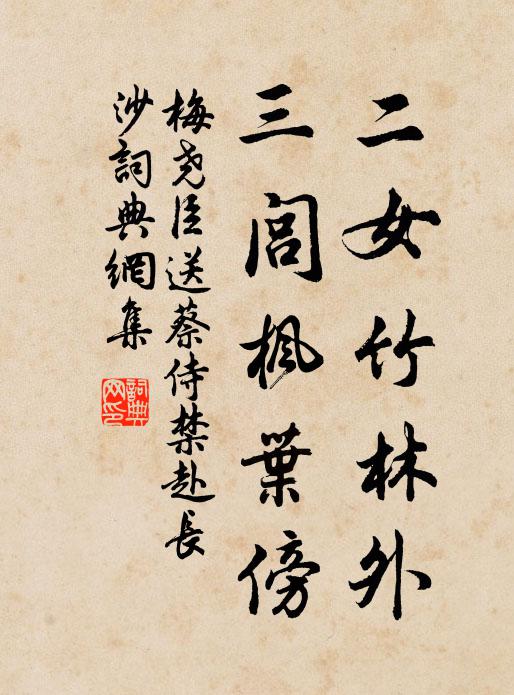 二女竹林外
三閭枫葉傍
梅尧臣送蔡侍禁赴長
沙詞典網集
詞典
网印